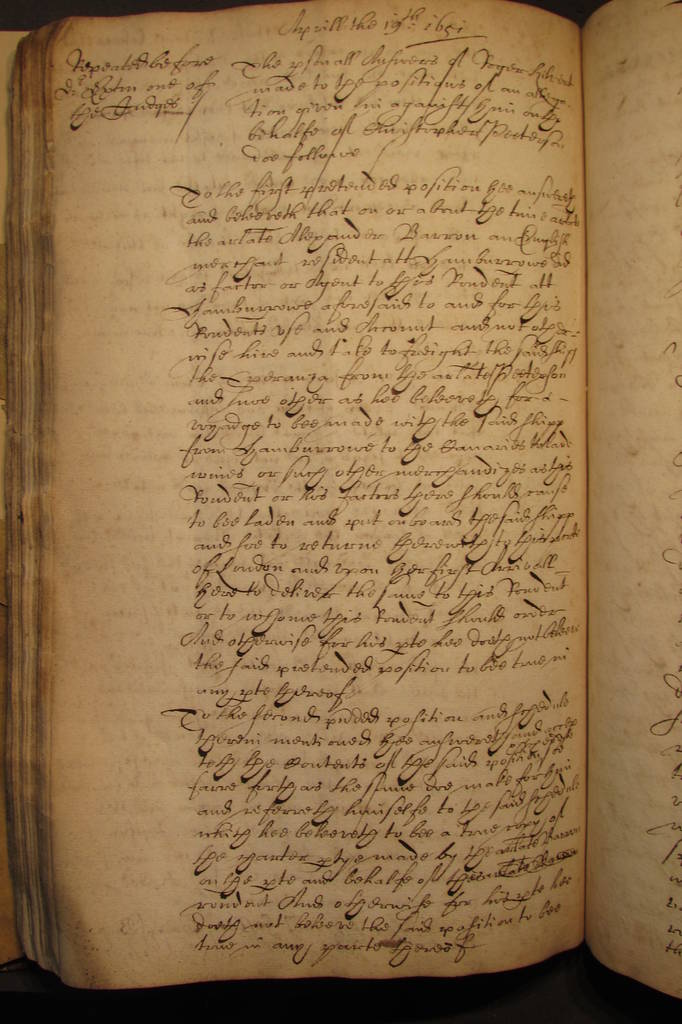 Aprill the 19th: 1651
Repeated before
Dr Exton one of
the Judges
The psonall Answers of Roger
made to the positions of an allega-
tion given in against him on the
behalfe of Christopher Peeterson
doe followe
To the first pretended position hee answereth
and beleeveth that on or about the time arlate
the arlate Alexander Barron an English
merchant resident att Hamburrowe did
as factor or Agent to this Rondent att
Hamburrowe aforesaid to and for this
Rondents use and Account and not other-
wise hire and take to freight the said shipp
the Speranza from the arlate Peeterson
and noe other as hee beleeveth for a
voyadge to bee made with the said shipp
from Hamburrowe to the Canaries to lade
wines or such other merchandizes as this
Rondent or his factors there should cause
to bee laden and put onboard the said shipp
and soe to returne therewith to this porte
of London and upon her first Arrivall
here to deliver the same to this Rondent
or to whome this Rondent should order
And otherwise for his pte hee doeth not beleeve
the said pretended position to bee true in
any pte thereof
To the second pnded position and schedule
therein mentioned hee answereth and accep
teth the Contents of the said position soe
farre forth as the same doe make for him
and referreth himselfe to the said schedule
which hee beleeveth to bee a true copy of
the charter ptye made by the arlate Barron
on the pte and behalfe of the arlate Barron
rondent And otherwise for his pte hee
doeth not beleeve the said position to bee
true in any parte thereof